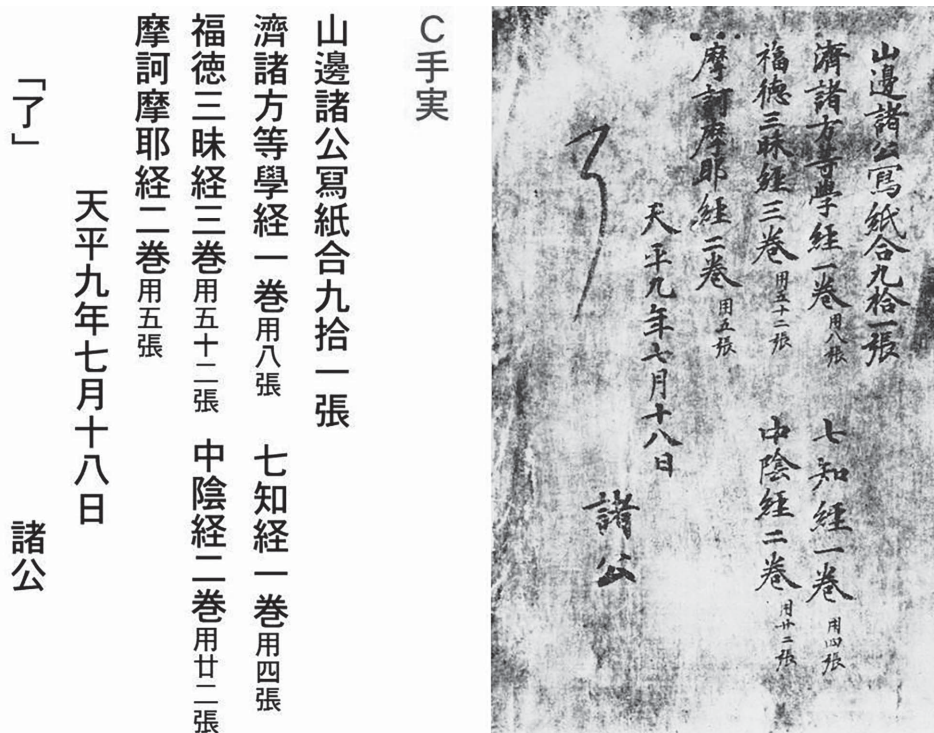 山邊諸公寫紙合九拾一張
濟諸方等學經一巻用八張 七知經一巻用四張
福徳三昧経三巻用五十二張 中陰経二巻用廿二張
摩訶摩耶経二巻用五張
天平九年七月十八日
了 諸公
C手実
山邊諸公冩紙合九拾一張
濟諸方等學経一巻用八張 七知経一巻用四張
福徳三昧経三巻用五十二張 中陰経二巻用廿二張
摩訶摩耶経二巻用五張
天平九年七月十八日
「了」 諸公